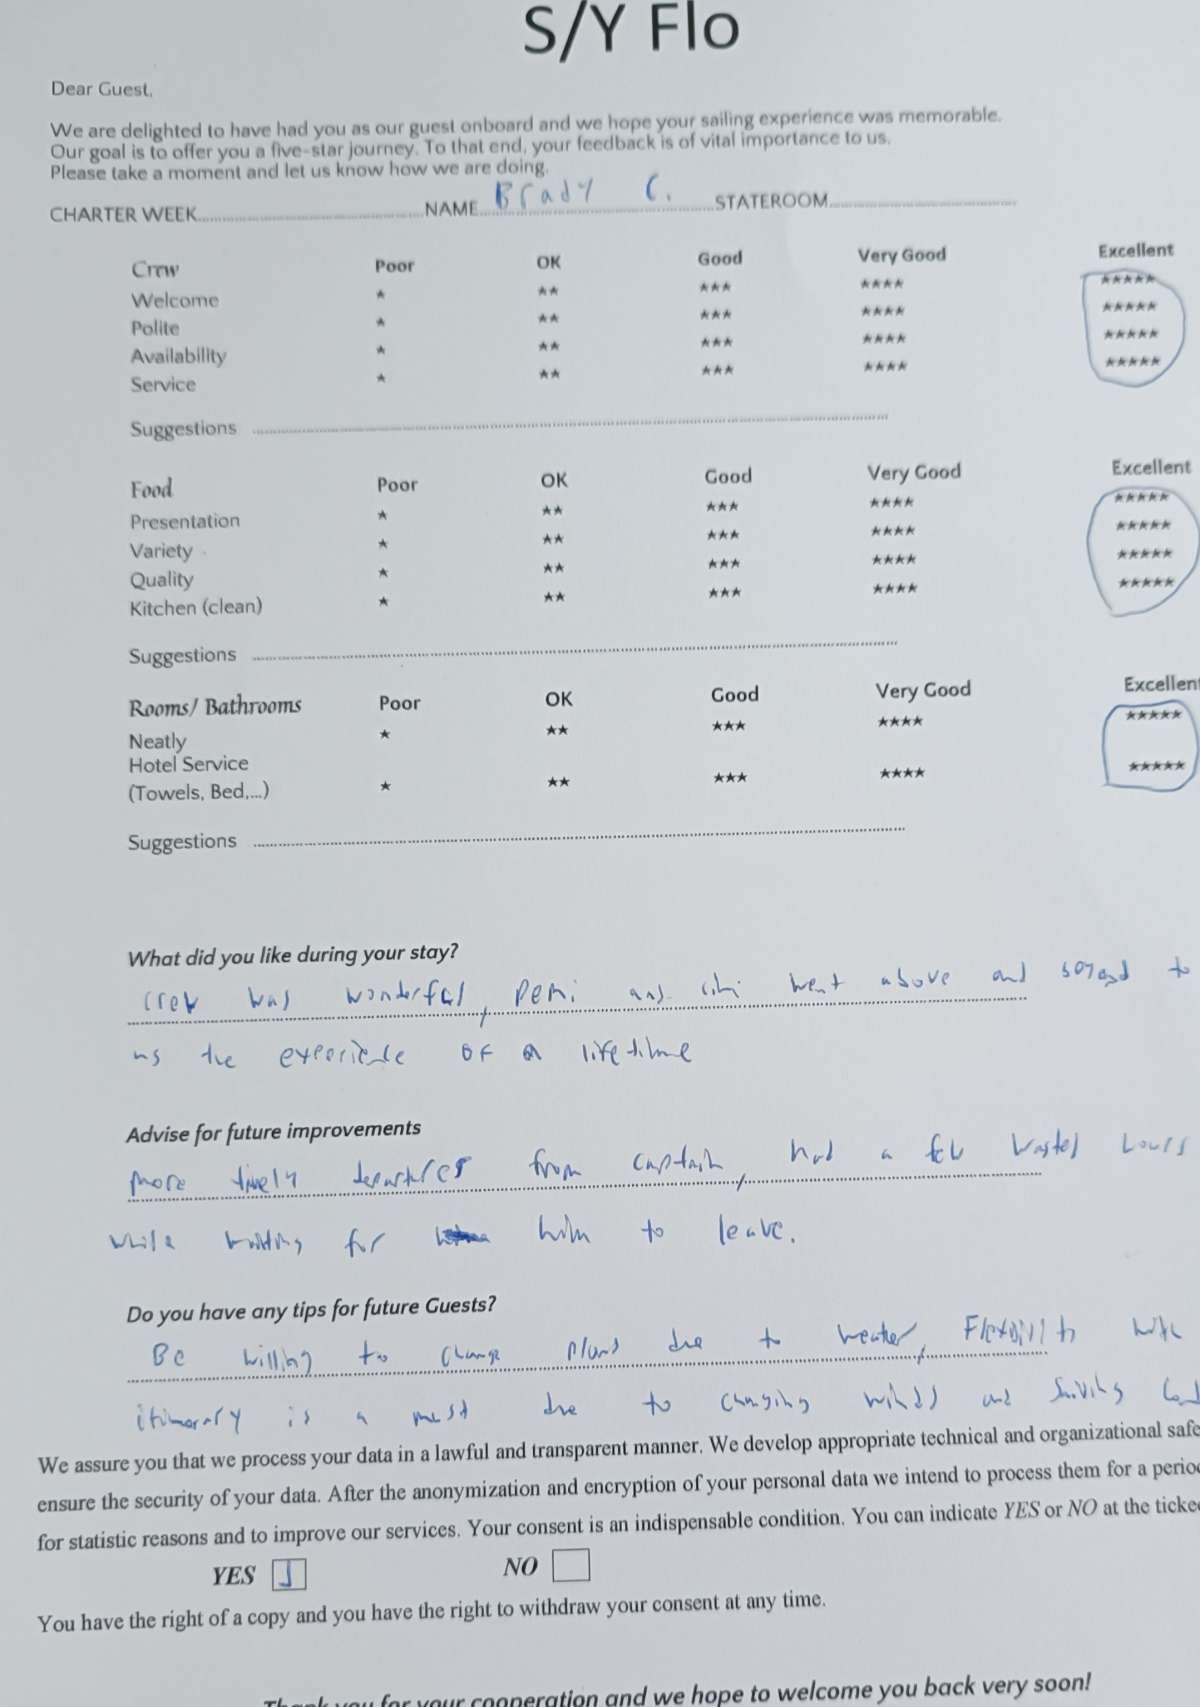 S/Y Flo
Dear Guest,
We are delighted to have had you as our guest onboard and we hope your sailing experience was memorable.
Our goal is to offer you a five-star journey. To that end, your feedback is of vital importance to us.
Please take a moment and let us know how we are doing.
CHARTER WEEK NAME Brady C. STATEROOM
Crew Poor OK Good Very Good Excellent
Welcome * ** *** **** *****
Polite * ** *** **** *****
Availability * ** *** **** *****
Service * ** *** **** *****
Suggestions
Food Poor OK Good Very Good Excellent
Presentation * ** *** **** *****
Variety * ** *** **** *****
Quality * ** *** **** *****
Kitchen (clean) * ** *** **** *****
Suggestions
Rooms/ Bathrooms Poor OK Good Very Good Excellent
Neatly * ** *** **** *****
Hotel Service
(Towels, Bed,...) * ** *** **** *****
Suggestions
What did you like during your stay?
crew was wonderful, and went above and to
us the experience of a lifetime
Advise for future improvements
more timely departures from captain, had a few wasted hours
while waiting for him to leave.
Do you have any tips for future Guests?
Be willing to change plans due to weather, Flexibility with
itinerary is a must due to changing winds and
We assure you that we process your data in a lawful and transparent manner. We develop appropriate technical and organizational safe
ensure the security of your data. After the anonymization and encryption of your personal data we intend to process them for a perio
for statistic reasons and to improve our services. Your consent is an indispensable condition. You can indicate YES or NO at the ticke
YES NO
You have the right of a copy and you have the right to withdraw your consent at any time.
Thank you for your cooperation and we hope to welcome you back very soon!